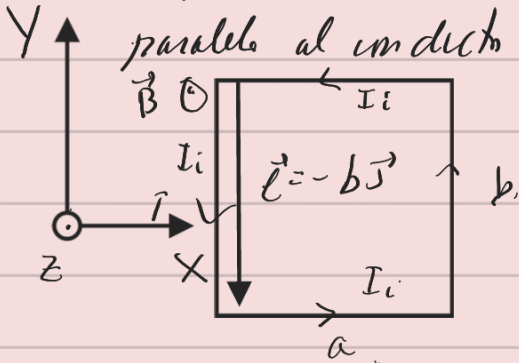 Y
paralelo al conducto
B⃗ ⊙ I_i
I_i l⃗ = - b J⃗ b,
i
Z X I_i
a